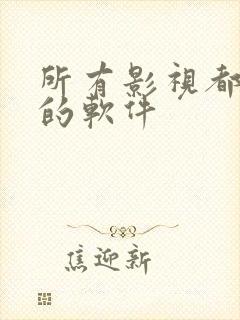 所有影視都
的軟件
焦迎新